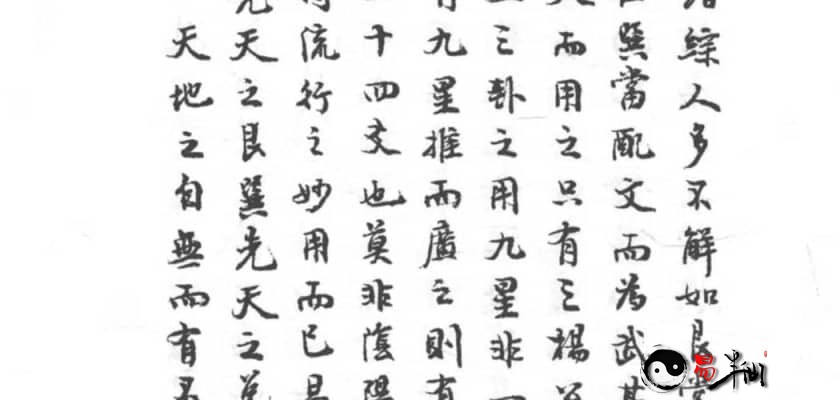 綜人多不解如艮當
巽當配文而為武其
而用之只有三楊
三卦之用九星非一
有九星推而廣之則有
十四爻也莫非陰陽
流行之妙用而已
先天之艮巽先天之
天地之自無而有
易半仙